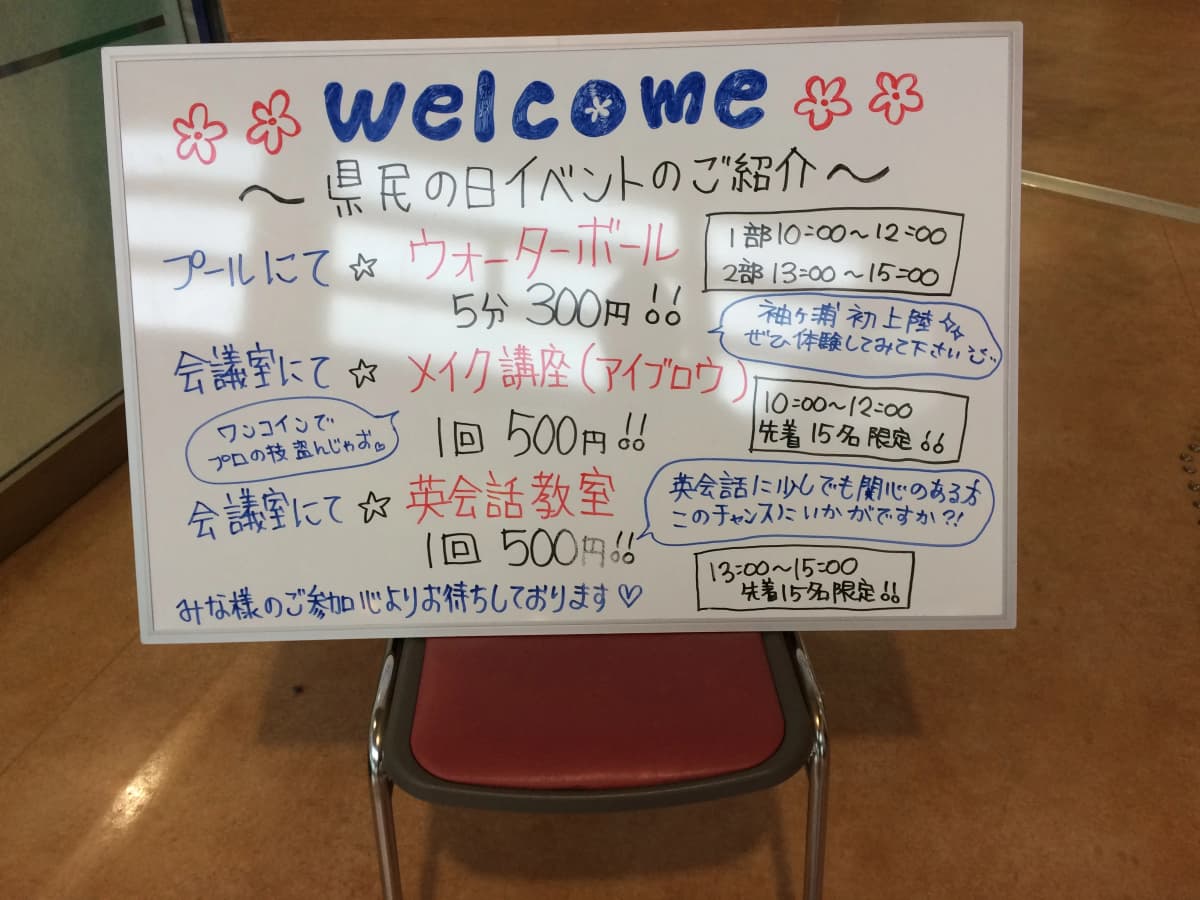 welcome
～県民の日イベントのご紹介～
プールにて☆ウォーターボール
5分 300円!!
1部10:00～12:00
2部13:00～15:00
袖ヶ浦初上陸☆☆
ぜひ体験してみて下さい
会議室にて☆メイク講座(アイブロウ)
1回 500円!!
ワンコインで
プロの技盗んじゃお♡
10:00～12:00
先着15名限定!!
会議室にて☆英会話教室
1回 500円!!
英会話に少しでも関心のある方
このチャンスにいかがですか?!
13:00～15:00
先着15名限定!!
みな様のご参加心よりお待ちしております♡